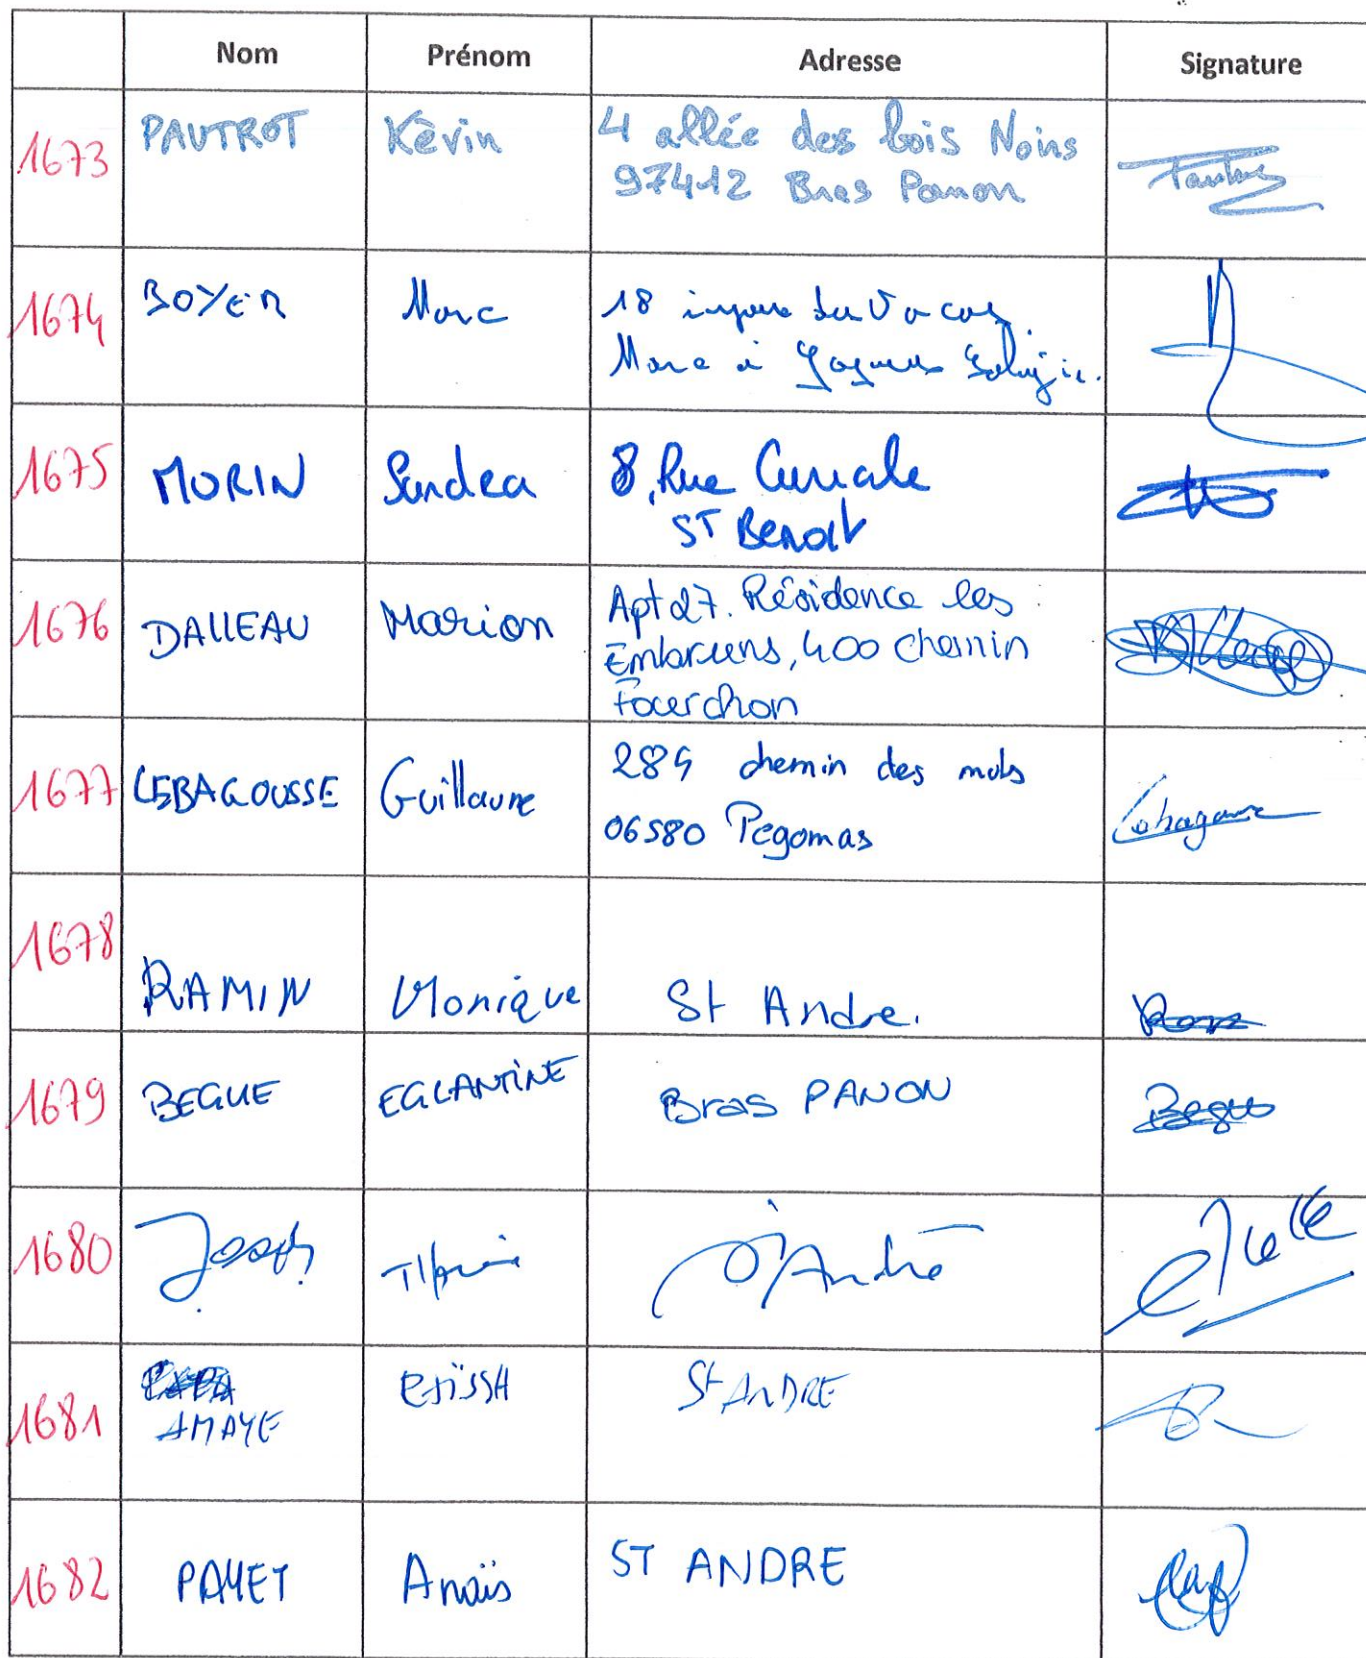 Nom Prénom Adresse Signature
1673 PAUTROT Kévin 4 allée des bois Noirs
97412 Bras Panon
1674 BOYER Marc 18
Marc à
1675 MORIN Sandra 8, Rue Curiale
ST Benoit
1676 DALLEAU Marion Apt 27. Résidence les
Embruns, 400 chemin
1677 LEBAGOUSSE Guillaume 284 chemin des
06580 Pegomas
1678
RAMIN Monique St Andre.
1679 BEGUE EGLANTINE Bras PANON
Begue
1680 Joseph St André
1681 St ANDRE
AMAYE
1682 PAYET Anaïs ST ANDRE